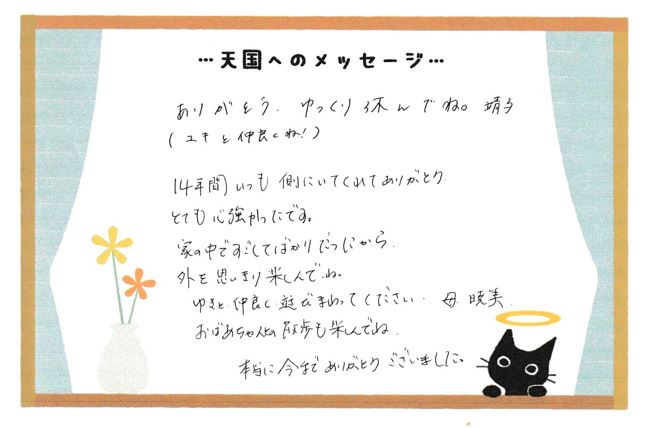 …天国へのメッセージ…
ありがとう、ゆっくり休んでね。靖子
(ユキと仲良くね!)
14年間いつも側にいてくれてありがとう
とても心強かったです。
家の中ですごしてばかりだったから、
外を思いきり楽しんでね。
ゆきと仲良く遊びまわってください。 母 暁美
おばあちゃんとの散歩も楽しんでね、
本当に今までありがとうございました。